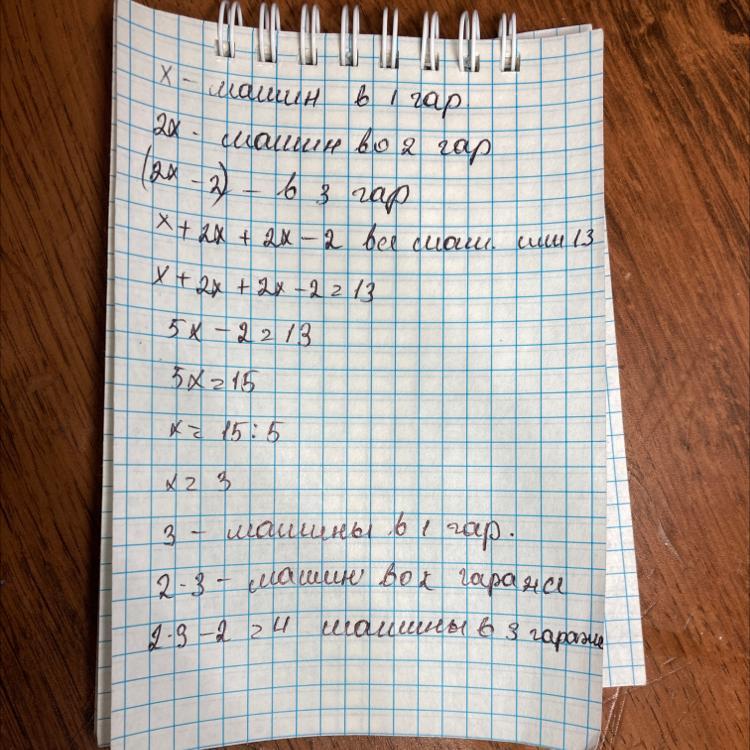 x - машин в 1 гар
2x - машин во 2 гар
(2x - 2) - в 3 гар
x + 2x + 2x - 2 все маш. или 13
x + 2x + 2x - 2 = 13
5x - 2 = 13
5x = 15
x = 15 : 5
x = 3
3 - машины в 1 гар.
2 · 3 - машин во 2 гараже
2 · 3 - 2 = 4 машины в 3 гараже